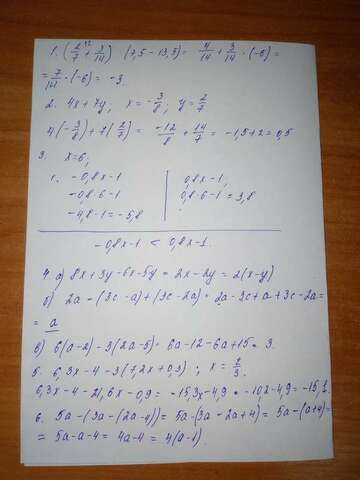 1. (2/7 + 3/14) (7,5 - 13,5) = 4/14 + 3/14 · (-6) =
= 7/14 · (-6) = -3.
2. 4x + 7y, x = -3/8; y = 2/7
4(-3/8) + 7(2/7) = -12/8 + 14/7 = -1,5 + 2 = 0,5
3. x = 6;
1. -0,8x - 1 | 0,8x - 1,
-0,8·6 - 1 | 0,8·6 - 1 = 3,8
-4,8 - 1 = -5,8
-0,8x - 1 < 0,8x - 1.
4. а) 8x + 3y - 6x - 5y = 2x - 2y = 2(x - y)
б) 2a - (3c - a) + (3c - 2a) = 2a - 3c + a + 3c - 2a =
= a
в) 6(a - 2) - 3(2a - 5) = 6a - 12 - 6a + 15 = 3.
5. 6,3x - 4 - 3(7,2x + 0,3); x = 2/3.
6,3x - 4 - 21,6x - 0,9 = -15,3x - 4,9 = -10,2 - 4,9 = -15,1.
6. 5a - (3a - (2a - 4)) = 5a - (3a - 2a + 4) = 5a - (a + 4) =
= 5a - a - 4 = 4a - 4 = 4(a - 1).